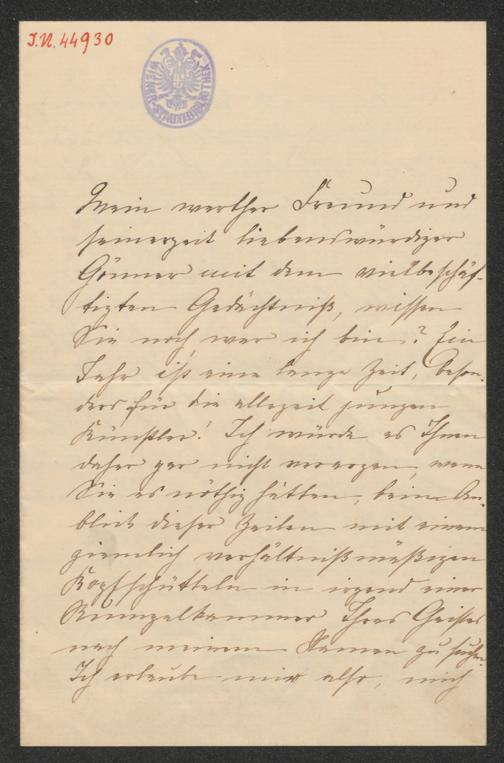 J.N. 44930
WIENER STADTBIBLIOTHEK
Mein werther Freund und
seinerzeit liebenswürdiger
Gönner mit dem vielbeschäf-
tigten Gedächtniß, wissen
Sie noch wer ich bin? Ein
Jahr ist eine lange Zeit, beson-
ders für die allezeit jungen
Künstler! Ich würde es Ihnen
daher gar nicht verargen, wenn
Sie es nöthig hätten, beim An-
blick dieser Zeilen mit einem
ziemlich verhältnißmäßigen
Kopfschütteln in irgend einer
Rumpelkammer Ihres Geistes
nach meinem Namen zu suchen.
Ich erlaube mir also, mich